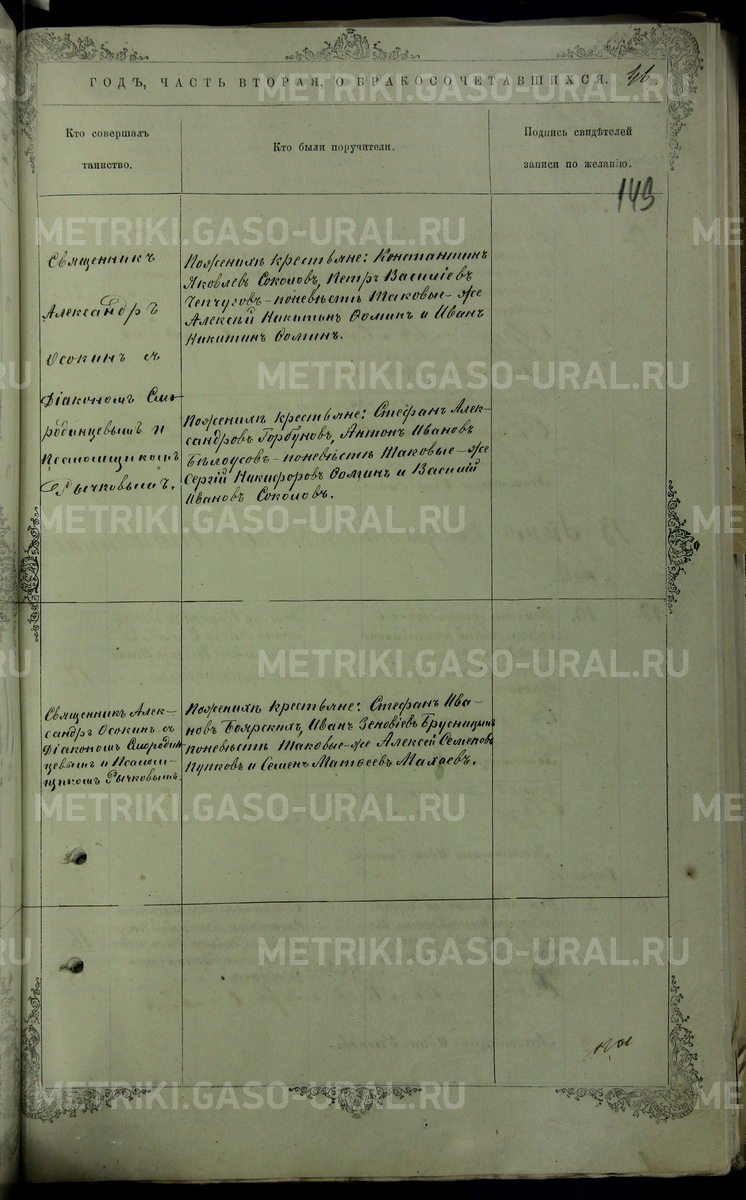 ГОДЪ, ЧАСТЬ ВТОРАЯ, О БРАКОСОЧЕТАВШИХСЯ. 46
Кто совершалъ
таинство.
Кто были поручители.
Подпись свидѣтелей
записи по желанію.
149
Священникъ
Александръ
Осокинъ съ
Діакономъ Смо-
родинцевымъ и
Псаломщикомъ
Рычковымъ.
Поженихѣ крестьяне: Константинъ
Яковлевъ Соколовъ, Петръ Василіевъ
Чепчуговъ - поневѣстѣ таковые-же
Алексѣй Никитинъ Ѳоминъ и Иванъ
Никитинъ Ѳоминъ.
Поженихѣ крестьяне: Стефанъ Алек-
сандровъ Горбуновъ, Антонъ Ивановъ
Бѣлоусовъ - поневѣстѣ таковые-же
Сергій Никифоровъ Ѳоминъ и Василій
Ивановъ Соколовъ.
Священникъ Алек-
сандръ Осокинъ съ
Діакономъ Смородин
цевымъ и Псалом-
щикомъ Рычковымъ.
Поженихѣ крестьяне: Стефанъ Ива-
новъ Боярскихъ, Иванъ Зеновіевъ Брусницынъ
поневѣстѣ таковые-же Алексѣй Семеновъ
Пупковъ и Семенъ Матѳеевъ Махаевъ.
METRIKI.GASO-URAL.RU